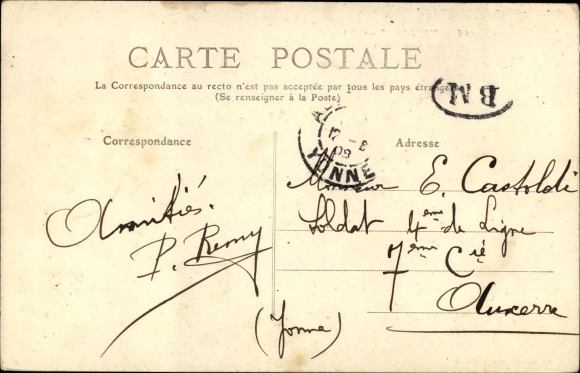 CARTE POSTALE
La Correspondance au recto n'est pas acceptée par tous les pays étrangers
(Se renseigner à la Poste)
B M
Correspondance
Adresse
3 - 4
09
YONNE
Amitiés.
P. Remy
Monsieur E. Castoldi
Soldat 4ème de Ligne
7ème Cie
Auxerre
(Yonne)